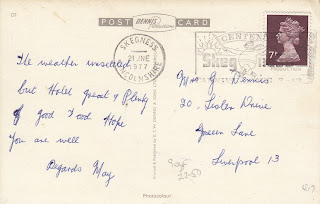 POST DENNIS CARD
SKEGNESS
LINCOLNSHIRE
21 JNE
1977
CENTENA
Skeg
7P
The weather unsettled
but Hotel great & Plenty
of good Food Hope
you are well
Regards May
Mrs G Dennis
20.
Green Lane
Liverpool 13
Photocolour